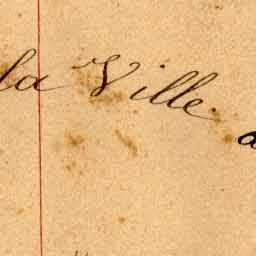 la Ville.